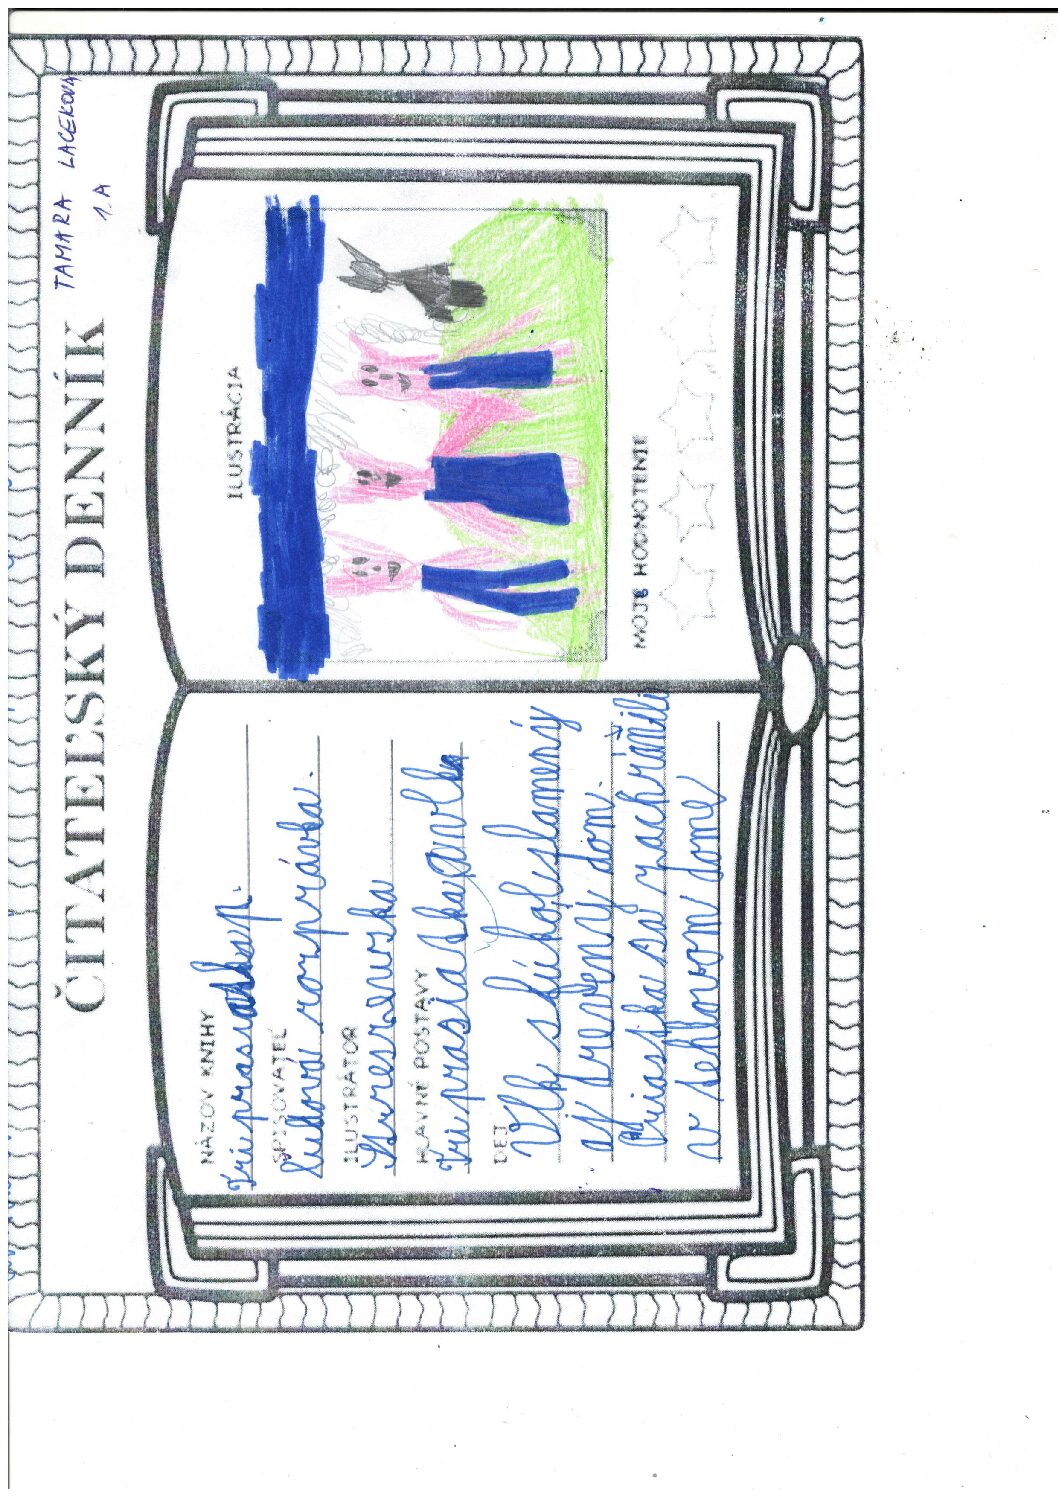 ČITATEĽSKÝ DENNÍK
TAMARA LACEKOVÁ
1. A
NÁZOV KNIHY
Tri prasiatka
SPISOVATEĽ
ľudová rozprávka.
ILUSTRÁTOR
HLAVNÉ POSTAVY
Tri prasiatka a vlk
DEJ
Vlk sfúkol slamený
aj drevený dom.
Prasiatka sa zachránili
v tehlovom dome
ILUSTRÁCIA
MOJE HODNOTENIE